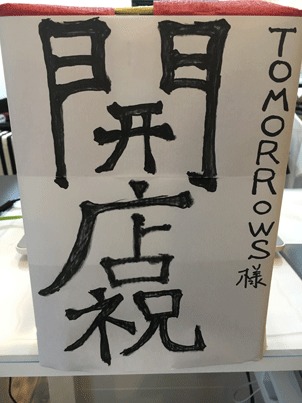 TOMORROWS様
開店祝